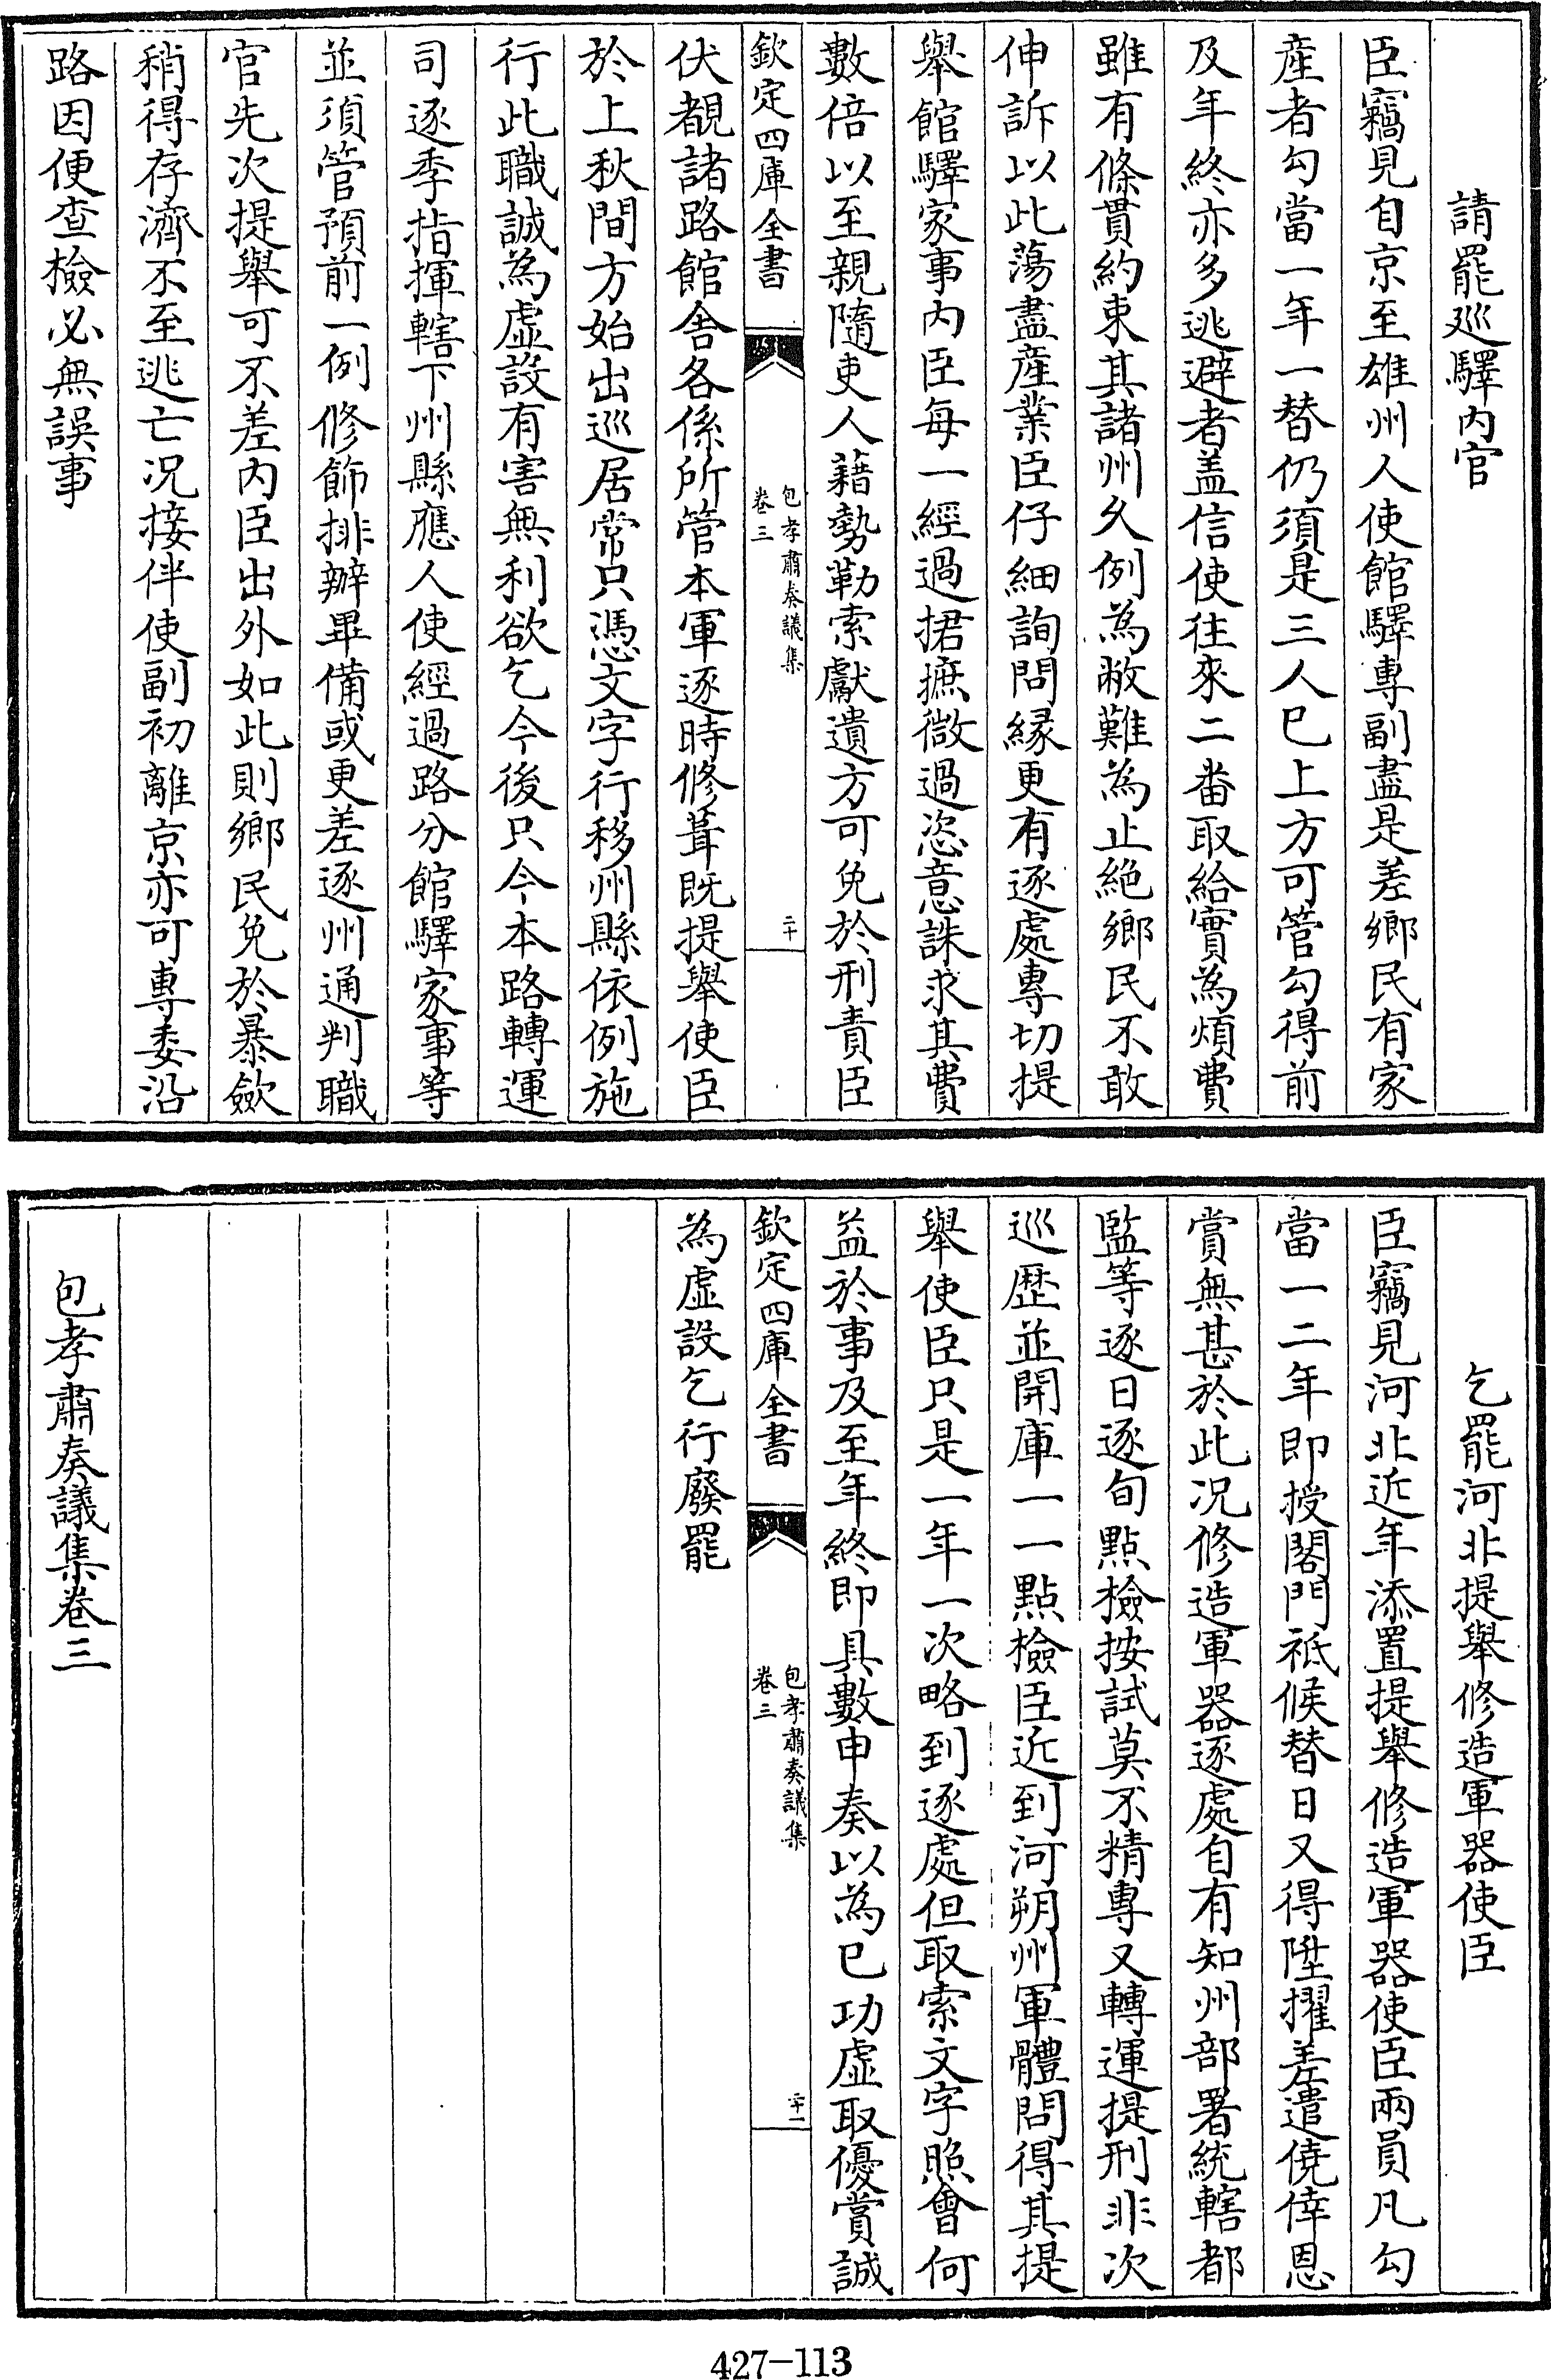 請罷巡驛内官
臣竊見自京至雄州人使館驛專副盡是差鄉民有家
産者勾當一年一替仍須是三人已上方可管勾得前
及年終亦多逃避者盖信使往來二番取給實為煩費
雖有條貫約束其諸州久例為敝難為止絶鄉民不敢
伸訴以此蕩盡産業臣仔細詢問縁更有逐處專切提
舉館驛家事内臣每一經過捃摭微過恣意誅求其費
數倍以至親隨吏人藉勢勒索獻遺方可免於刑責臣
欽定四庫全書
包孝肅奏議集
卷三
二十
伏覩諸路館舍各係所管本軍逐時修葺既提舉使臣
於上秋間方始出巡居常只憑文字行移州縣依例施
行此職誠為虚設有害無利欲乞今後只令本路轉運
司逐季指揮轄下州縣應人使經過路分館驛家事等
並須管預前一例修飾排辦畢備或更差逐州通判職
官先次提舉可不差内臣出外如此則鄉民免於暴斂
稍得存濟不至逃亡况接伴使副初離京亦可專委沿
路因便查檢必無誤事
乞罷河北提舉修造軍器使臣
臣竊見河北近年添置提舉修造軍器使臣兩員凡勾
當一二年即授閣門祗候替日又得陞擢差遣僥倖恩
賞無甚於此况修造軍器逐處自有知州部署統轄都
監等逐日逐旬點檢按試莫不精專又轉運提刑非次
巡歴並開庫一一點檢臣近到河朔州軍體問得其提
舉使臣只是一年一次略到逐處但取索文字照會何
益於事及至年終即具數申奏以為已功虚取優賞誠
欽定四庫全書
包孝肅奏議集
卷三
二十一
為虚設乞行廢罷
包孝肅奏議集卷三
427-113